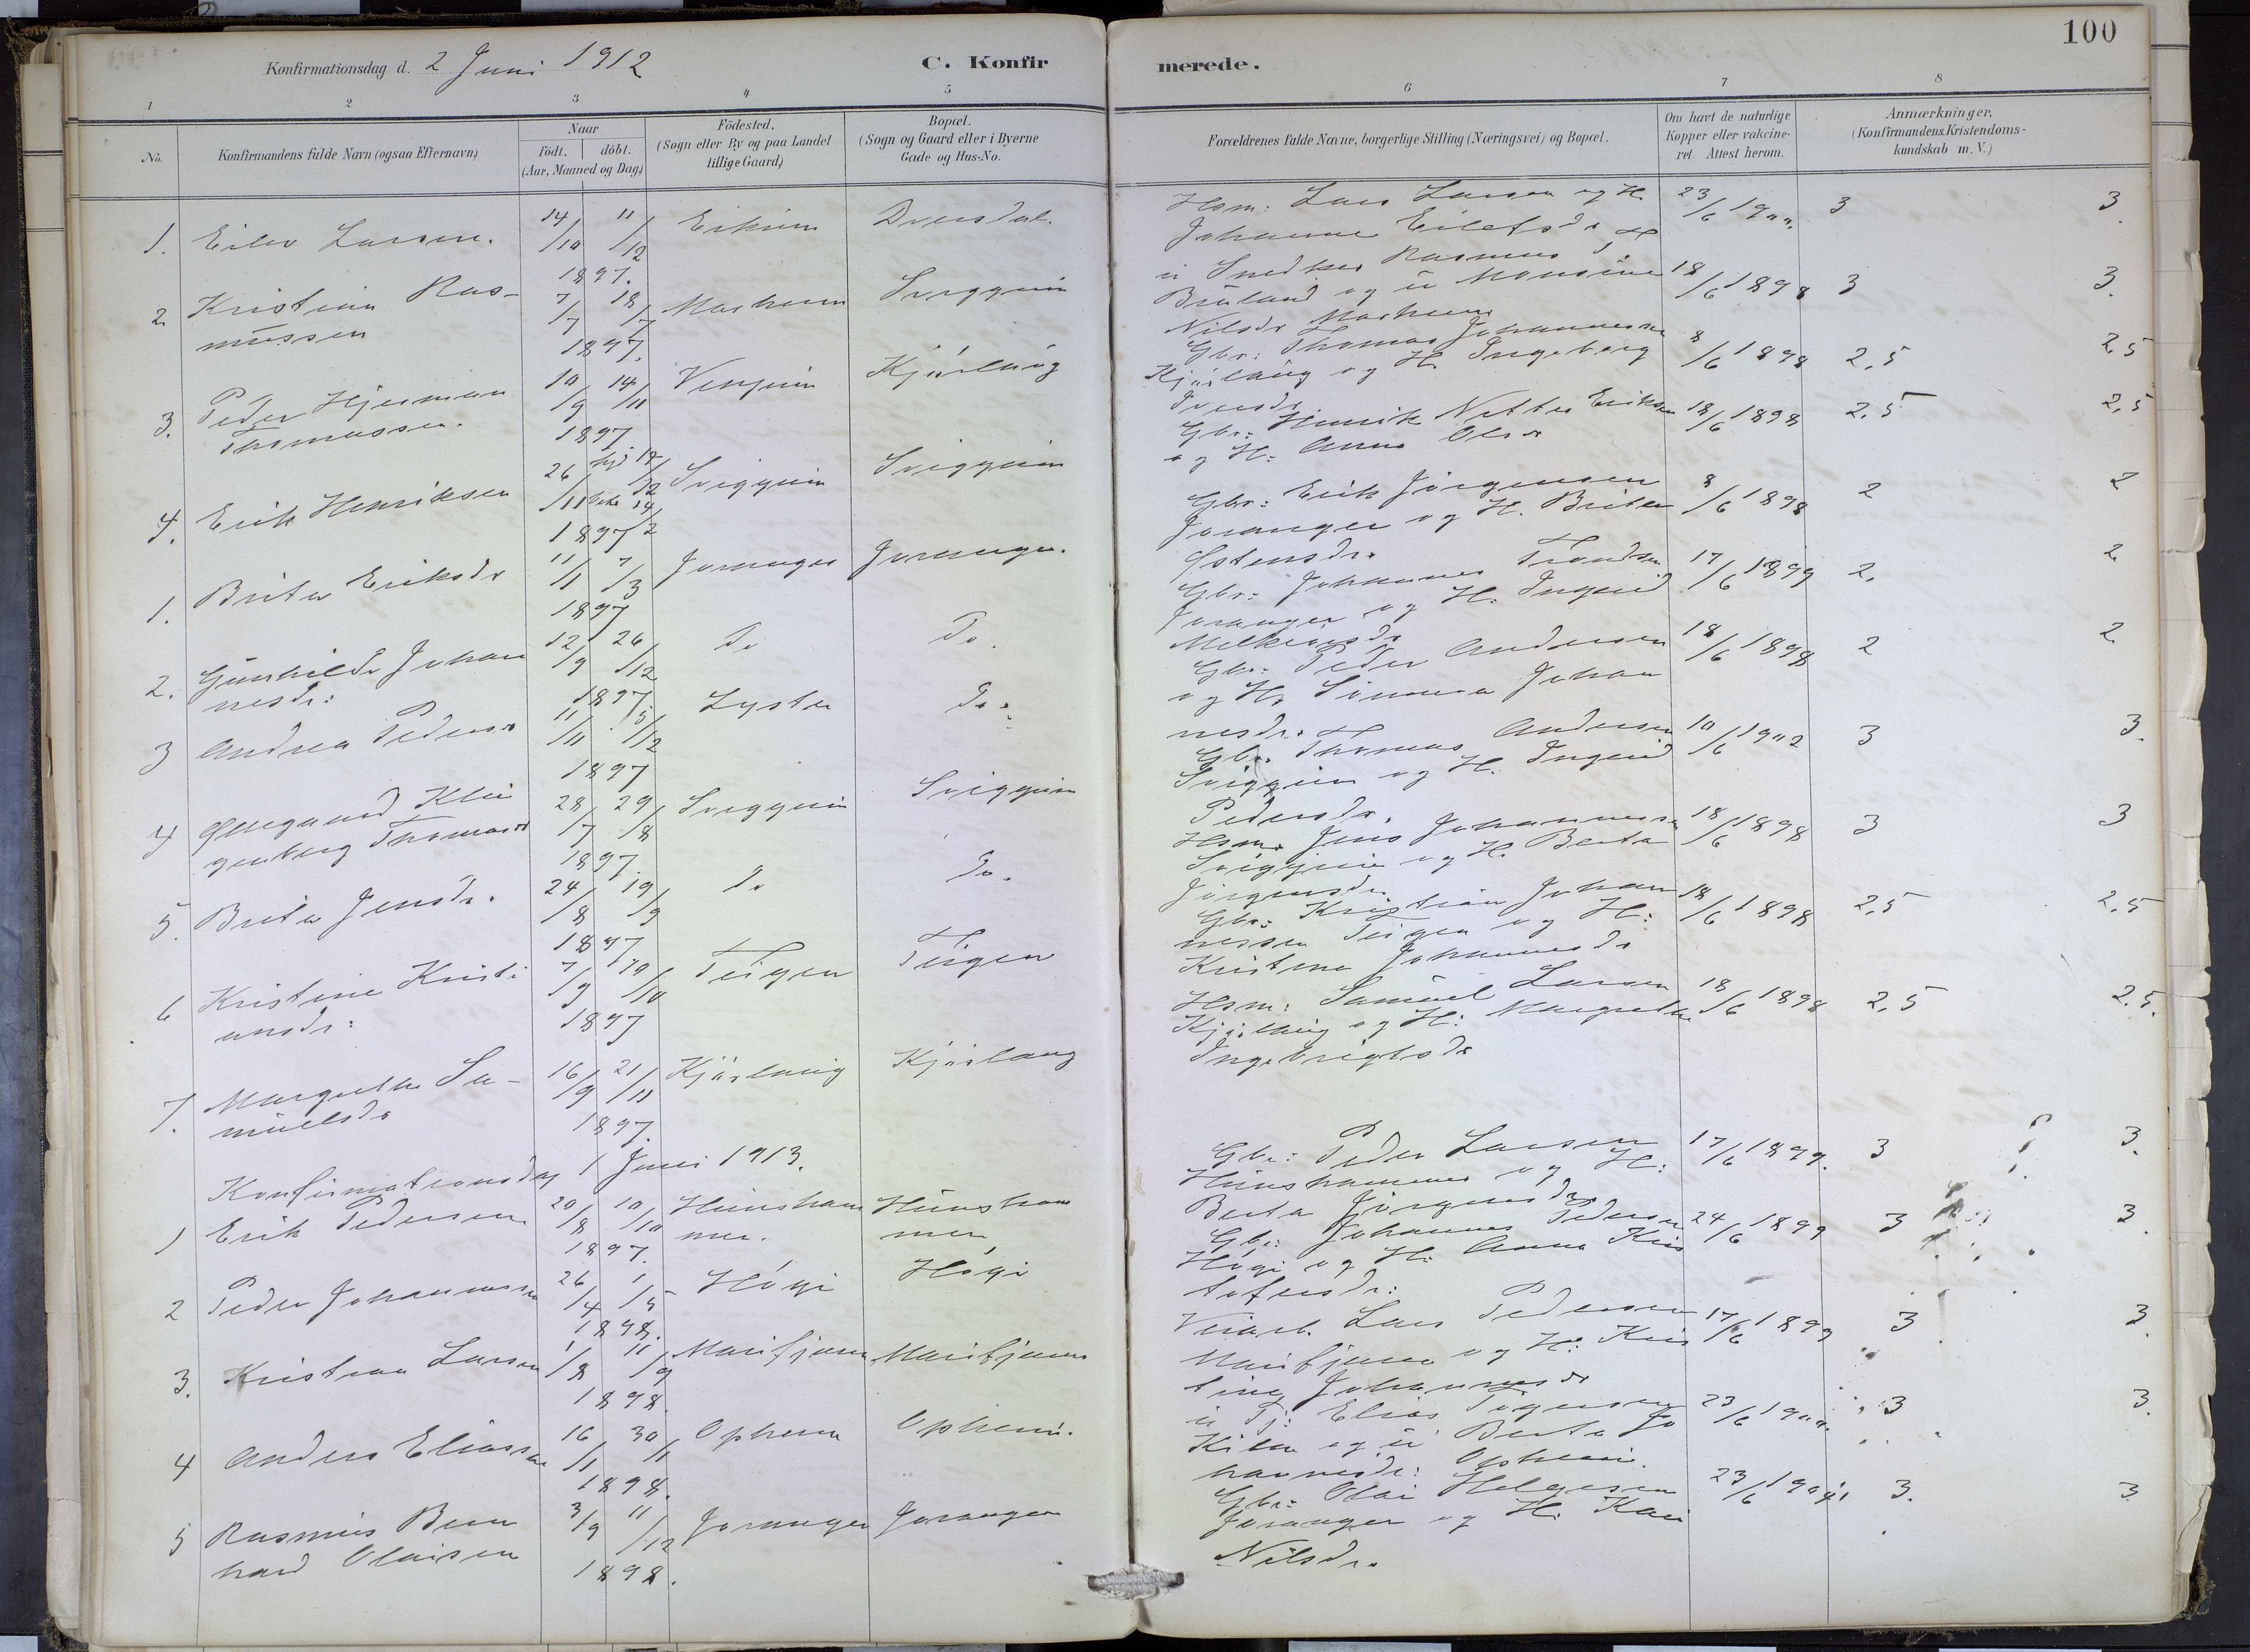 100
Konfirmationsdag d. 2 Juni 1912
C. Konfirmerede.
1 2 3 4 5 6 7 8
No.
Konfirmandens fulde Navn (ogsaa Efternavn)
Naar
födt. döbt.
(Aar, Maaned og Dag)
Födested.
(Sogn eller By og paa Landet
tillige Gaard)
Bopæl.
(Sogn og Gaard eller i Byerne
Gade og Hus-No.
Forældrenes fulde Navne, borgerlige Stilling (Næringsvei) og Bopæl.
Om havt de naturlige
Kopper eller vakcine-
ret. Attest herom.
Anmærkninger,
(Konfirmandens Kristendoms-
kundskab m. V.)
1. Eilev Larsen. 14/10 11/12 1897.
Hsm: Lars Larsen og H.
Johanne 23/6 1900. 3 3.
2 Kristian Ras-
mussen 7/7 18/7 1897. Marheim Sveggum
u Snedker Rasmus
og u
Nilsdr Marheim 18/6 1898 3 3.
3. Peder Hjerman
Thomassen. 10/9 14/11 1897 Kjørlaug
Gbr: Thomas Johannessen
Kjørlaug og H. Ingeborg 8/6 1898 2,5 2,5
4. Erik Henriksen 26/11 1897
Gbr: Henrik Eriksen
og H: Anna Olsdr 18/6 1898 2,5 2,5
1. Brita Eriksdr 11/1 7/3 1897 Joranger Joranger.
Gbr: Erik Jørgensen
Joranger og H. Brita
Ostensdr. 8/6 1898 2 2
2. Gunhilda Johan
nesdr: 12/9 26/12 1897 Do Do.
Gbr: Johannes Trondsen
Joranger og H: Ingrid
Melkiorsdr 17/6 1899 2. 2
3 Andrea Pedersdr 11/11 5/12 1897 Lyster Do.
Gbr: Peder Andersen
og H. Johan
nesdr. 18/6 1898 2 2
4 28/7 29/8 1897. Thomasdr
Gbr. Thomas Andersen
og H. Ingrid
Pedersdr. 10/6 1902 3 3.
5. Brita Jensdr. 24/8 19/9 1897 Do Do.
Hsm. Jens Johannessen
og H. Berta
Jørgensdr. 18/6 1898 3 3
6 Kristine Kristi
ansdr: 7/9 10/10 1897 Teigen Teigen
Gbr: Kristian Johan
nessen Teigen og H:
Kristina Johannesdr 18/6 1898 2,5 2,5
7. Margrethe Sa-
muelsdr 16/9 21/11 1897. Kjørlaug Kjørlaug
Hsm: Samuel Larsen
Kjørlaug og H: Margrethe
Ingebrigtsdr 18/6 1898 2,5 2,5.
Konfirmationsdag 1 Juni 1913.
1 Erik Pedersen 20/8 10/10 1897. Hunsham
mer. Hunsham
mer
Gbr: Peder Larsen
Hunshammer og H:
Berta Jørgensdr. 17/6 1899. 3 3.
2 Peder Johannessen 26/4 1/5 1898. Høgi Høgi
Gbr: Johannes Pedersen
Høgi og H: Anna Kris
tofersdr: 24/6 1899 3 3
3. Kristian Larsen 1/8 11/9 1898. Marifjæren Marifjæren
Veiarb. Lars Pedersen
Marifjæren og H: Kris
tina Johannesdr 17/6 1899 3 3.
4 Anders Eliassen 16/1 30/1 1898. Opheim Opheim.
u Tj: Elias
og u Berta Jo
hannesdr: Opheim. 23/6 1900. 3 3.
5 Rasmus Bern
hard Olaisen 3/9 11/12 1898. Joranger Joranger
Gbr: Olai Helgesen
Joranger og H. Kari
Nilsdr. 23/6 3. 3